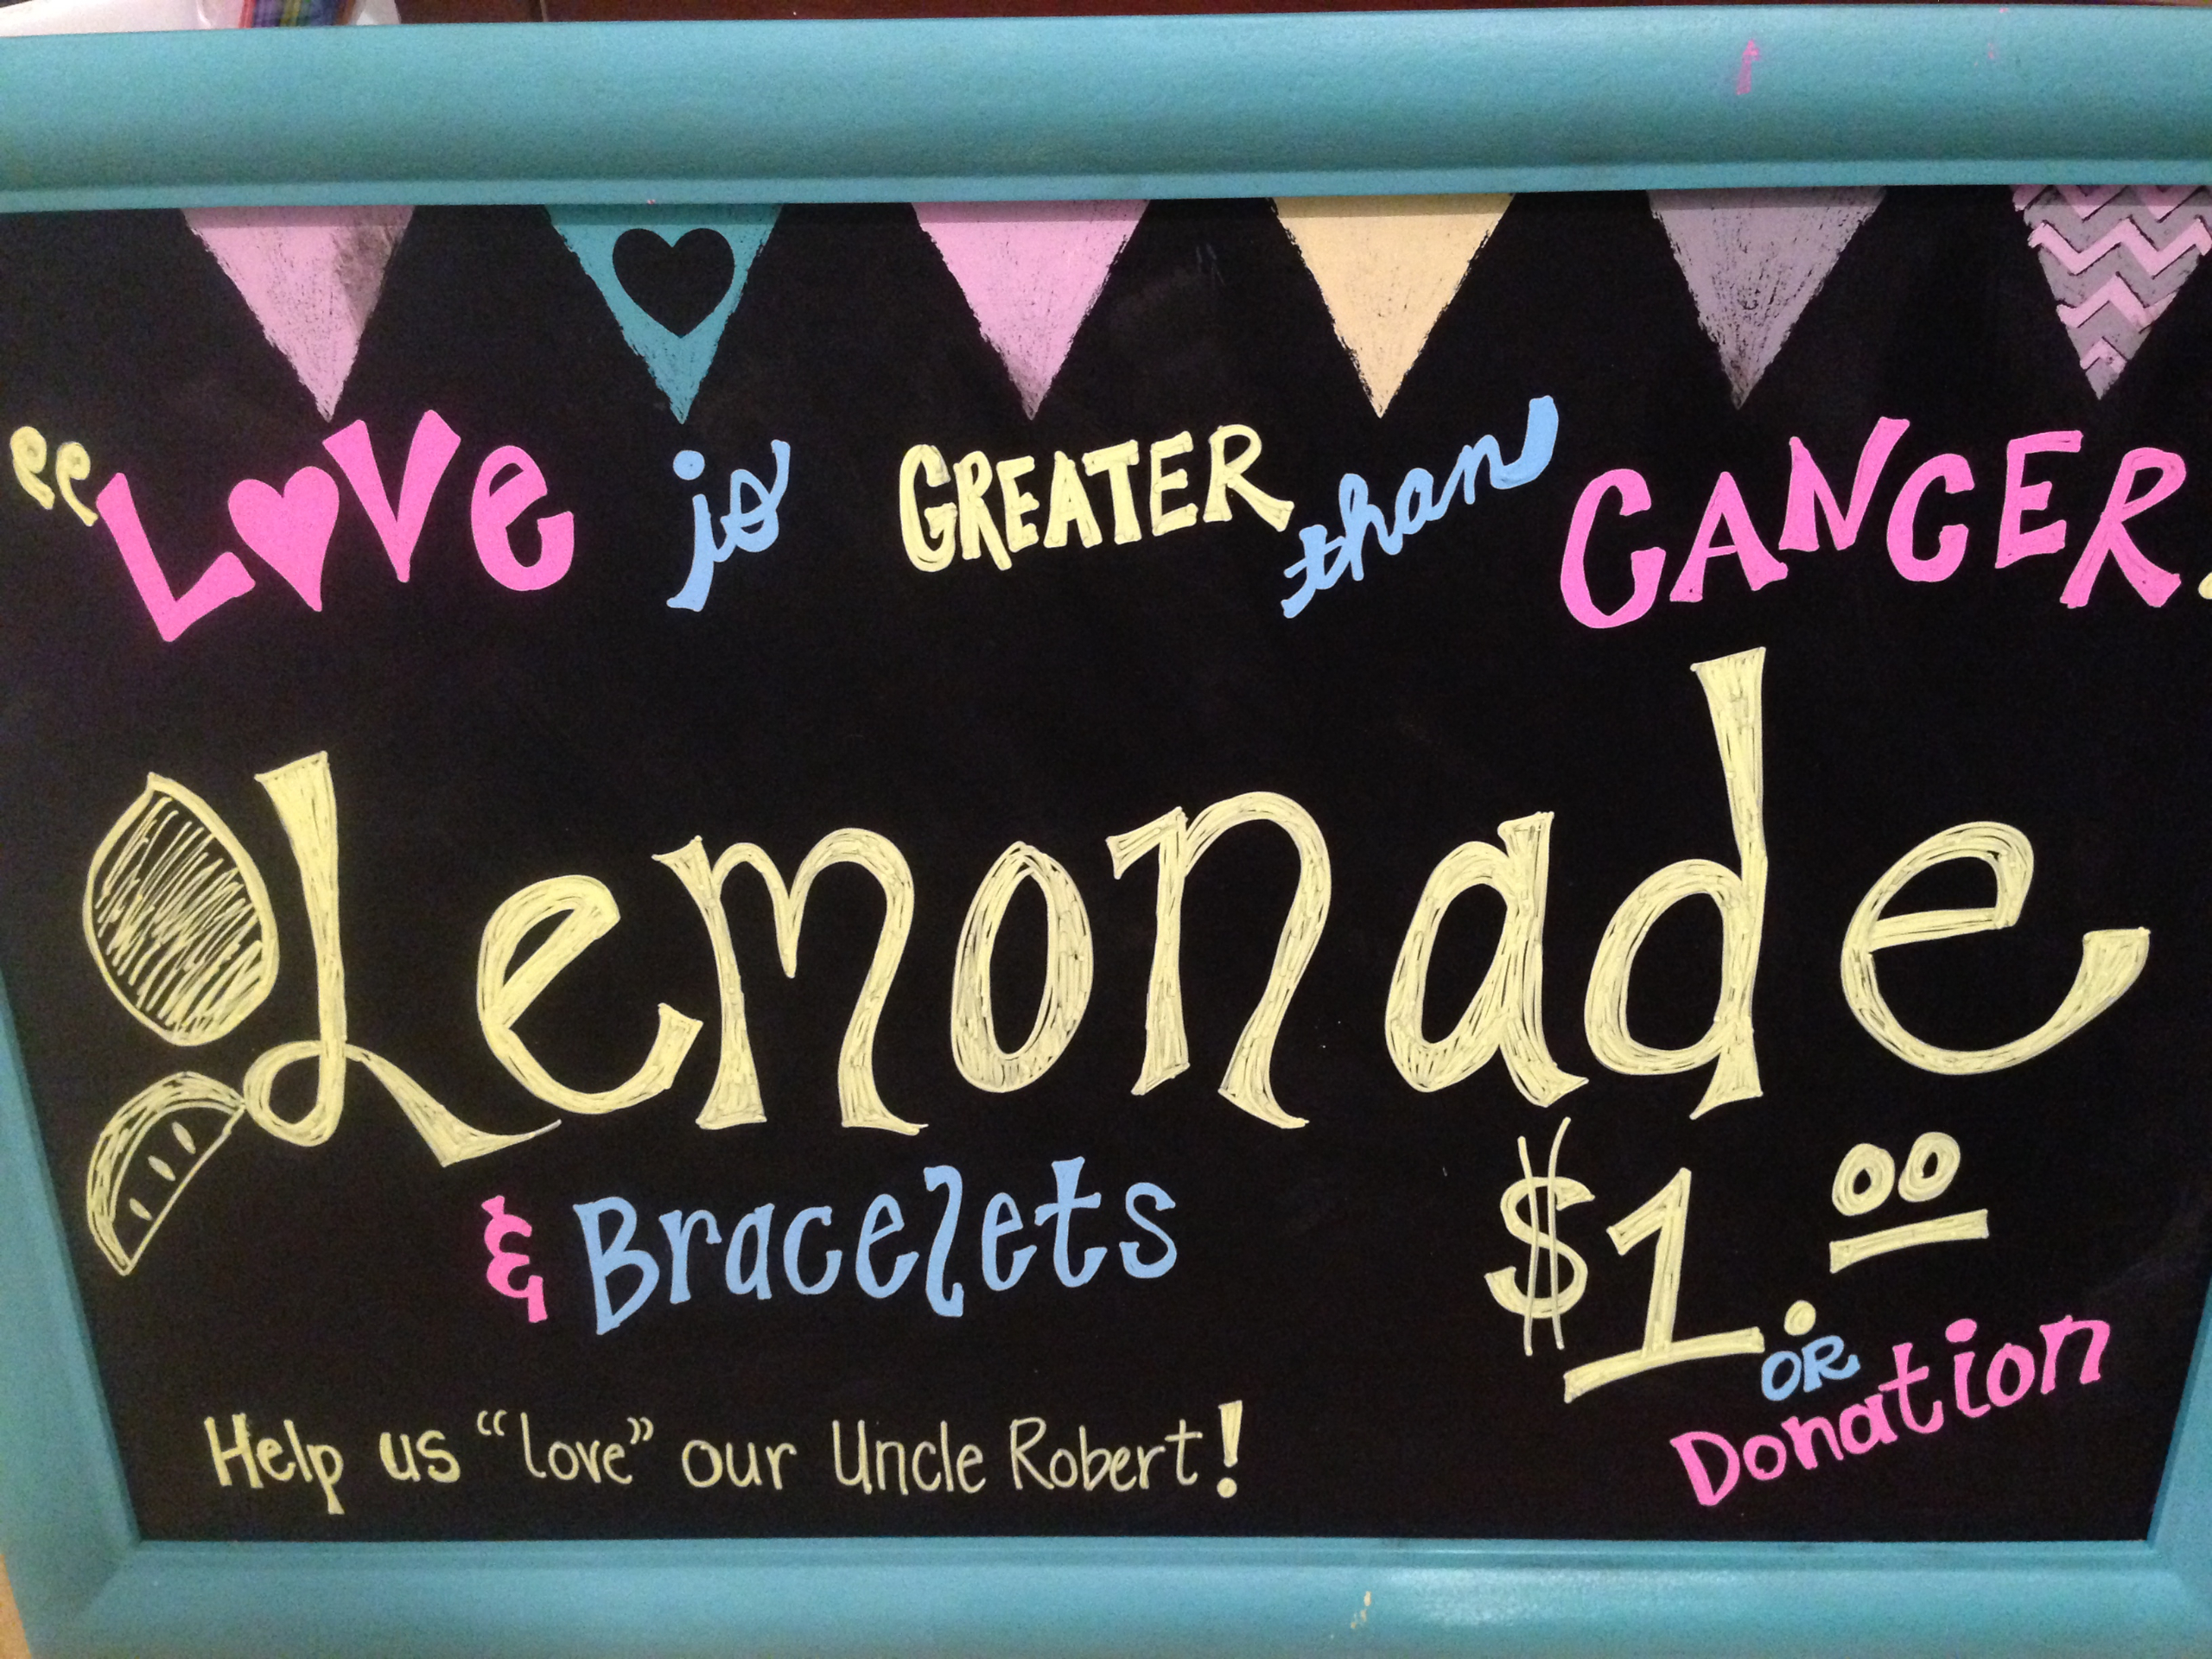 "Love is GREATER than CANCER.
Lemonade
& Bracelets
$1.00
OR
Donation
Help us "love" our Uncle Robert!